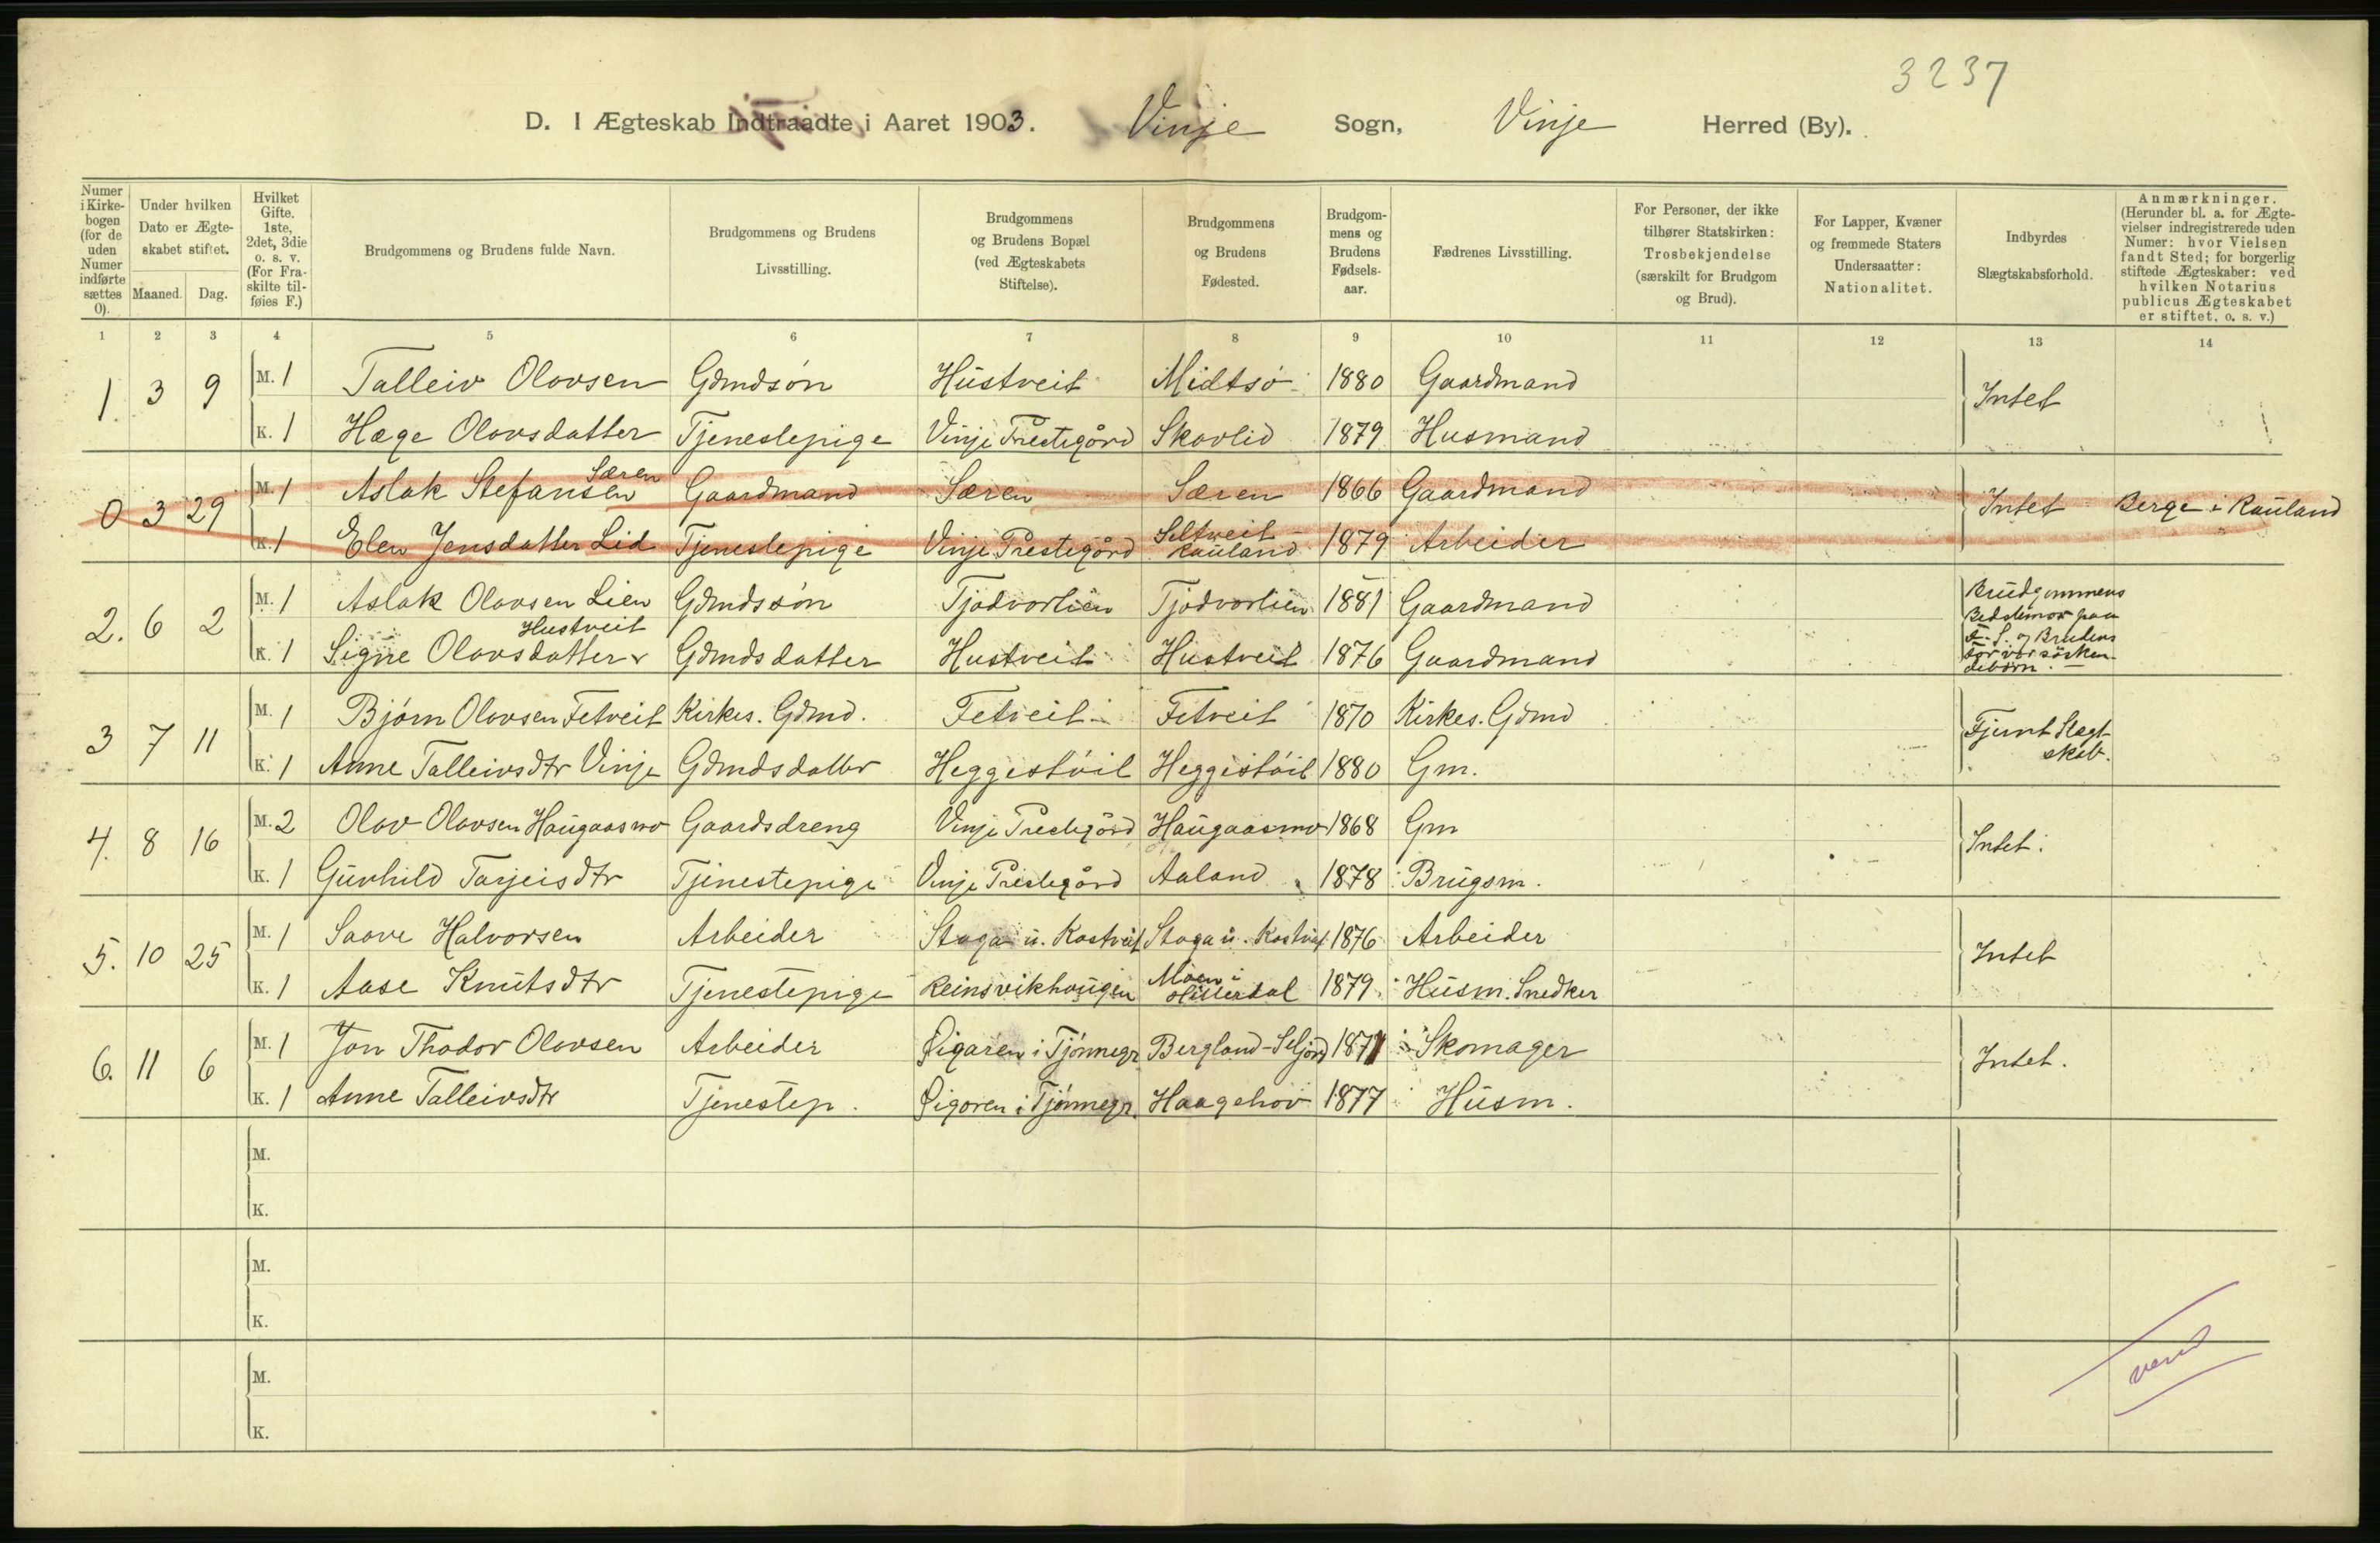 3237
D. I Ægteskab Indtraadte i Aaret 1903. Vinje Sogn, Vinje Herred (By).
Numer i Kirkebogen (for de uden Numer indførte sættes 0).
Under hvilken Dato er Ægteskabet stiftet.
Maaned. Dag.
Hvilket Gifte. 1ste, 2det, 3die o. s. v. (For Fraskilte tilføies F.)
Brudgommens og Brudens fulde Navn.
Brudgommens og Brudens Livsstilling.
Brudgommens og Brudens Bopæl (ved Ægteskabets Stiftelse).
Brudgommens og Brudens Fødested.
Brudgommens og Brudens Fødselsaar.
Fædrenes Livsstilling.
For Personer, der ikke tilhører Statskirken: Trosbekjendelse (særskilt for Brudgom og Brud).
For Lapper, Kvæner og fremmede Staters Undersaatter: Nationalitet.
Indbyrdes Slægtskabsforhold.
Anmærkninger. (Herunder bl. a. for Ægtevielser indregistrerede uden Numer: hvor Vielsen fandt Sted; for borgerlig stiftede Ægteskaber: ved hvilken Notarius publicus Ægteskabet er stiftet, o. s. v.)
1 2 3 4 5 6 7 8 9 10 11 12 13 14
1. 3 9 M. 1 Talleiv Olovsen Gdmdsøn Hustveit Midtsø 1880 Gaardmand Intet
K. 1 Hæge Olovsdatter Tjenestepige Vinje Prestegård Skovlid 1879 Husmand
0 3 29 M. 1 Aslak Stefansen Særen Gaardmand Særen Særen 1866 Gaardmand Intet Berge i Rauland
K. 1 Elen Jensdatter Lid Tjenestepige Vinje Prestegård Seltveit Rauland 1879 Arbeider
2. 6 2 M. 1 Aslak Olovsen Lien Gdmdssøn Tjodvorlien Tjodvorlien 1881 Gaardmand Brudgommens Bedstemor paa F. S. og Brudens
K. 1 Signe Olovsdatter Hustveit Gdmdsdatter Hustveit Hustveit 1876 Gaardmand
3 7 11 M. 1 Bjørn Olovsen Fetveit Kirkes. Gdmd. Fetveit Fetveit 1870 Kirkes. Gdmd Fjernt Slægtskab.
K. 1 Anne Talleivsdtr Vinje Gdmdsdatter Heggestøil Heggestøil 1880 Gm.
4. 8 16 M. 2 Olov Olovsen Haugaasmo Gaardsdreng Vinje Prestegård Haugaasmo 1868 Gm Intet.
K. 1 Gunhild Tarjeisdtr Tjenestepige Vinje Prestegård Aaland 1878 Brugsm.
5. 10 25 M. 1 Saave Halvorsen Arbeider Stoga u. Kostveit Stoga u. Kostveit 1876 Arbeider Intet
K. 1 Aase Knutsdtr Tjenestepige Reinsvikhaugen Moen i Hitterdal 1879 Husm. Snedker
6. 11 6 M. 1 Jon Thodor Olovsen Arbeider Øigaren i Tjønnegr. Bergland-Seljord 1871 Skomager Intet.
K. 1 Anne Talleivsdtr Tjenestep. Øigoren i Tjønnegr. Haagehov 1877 Husm.
M.
K.
M.
K.
M.
K.